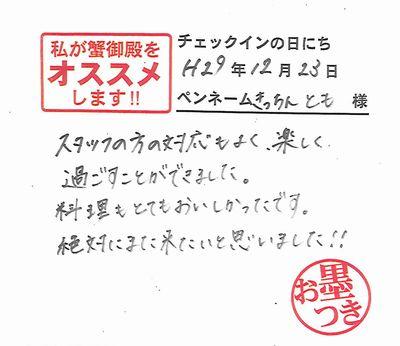 私が蟹御殿を
オススメ
します!!
チェックインの日にち
H29年12月23日
ペンネーム きっちん とも 様
スタッフの方の対応もよく、楽しく
過ごすことができました。
料理もとてもおいしかったです。
絶対にまた来たいと思いました!!
お墨つき